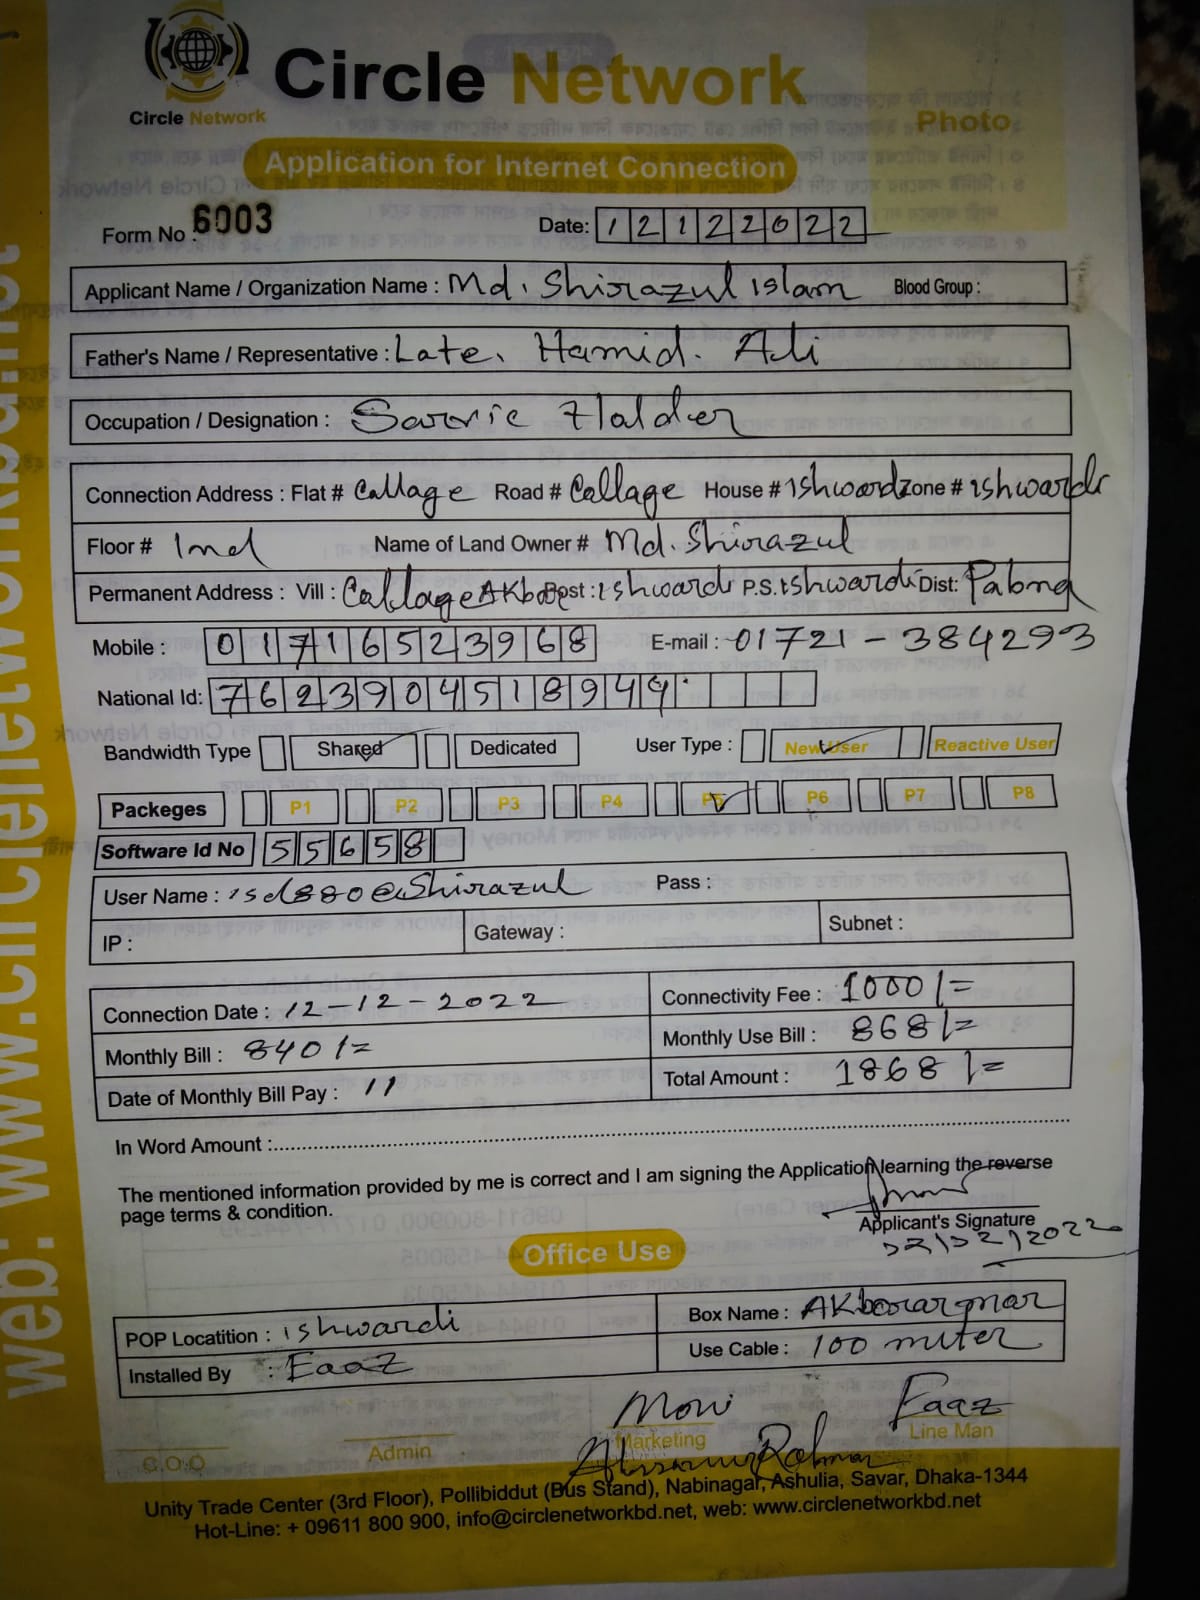 Circle Network
Circle Network
Photo
Application for Internet Connection
Form No : 6003
Date: 12122022
Applicant Name / Organization Name : Md. Shirazul islam Blood Group :
Father's Name / Representative : Late. Hamid. Ali
Occupation / Designation : Sarvic Holder
Connection Address : Flat # Callage Road # Callage House # ishward Zone # ishwardi
Floor # 2nd Name of Land Owner # Md. Shirazul
Permanent Address : Vill : Callage Post : ishwardi P.S. ishwardi Dist: Pabna
Mobile : 01716523968 E-mail : 01721-384293
National Id: 7623904518944
Bandwidth Type Shared Dedicated User Type : New User Reactive User
Packeges P1 P2 P3 P4 P5 P6 P7 P8
Software Id No 55658
User Name : isd880@Shirazul Pass :
IP : Gateway : Subnet :
Connection Date : 12-12-2022 Connectivity Fee : 1000/=
Monthly Bill : 840/= Monthly Use Bill : 868/=
Date of Monthly Bill Pay : 11 Total Amount : 1868/=
In Word Amount :
The mentioned information provided by me is correct and I am signing the Application learning the reverse
page terms & condition.
Applicant's Signature
Office Use
POP Locatition : ishwardi Box Name : AKborarmor
Installed By : Eaaz Use Cable : 100 miter
Moni Faaz
C.O.O Admin Marketing Line Man
Unity Trade Center (3rd Floor), Pollibiddut (Bus Stand), Nabinagar, Ashulia, Savar, Dhaka-1344
Hot-Line: + 09611 800 900, info@circlenetworkbd.net, web: www.circlenetworkbd.net
web: www.circlenetworkbd.net